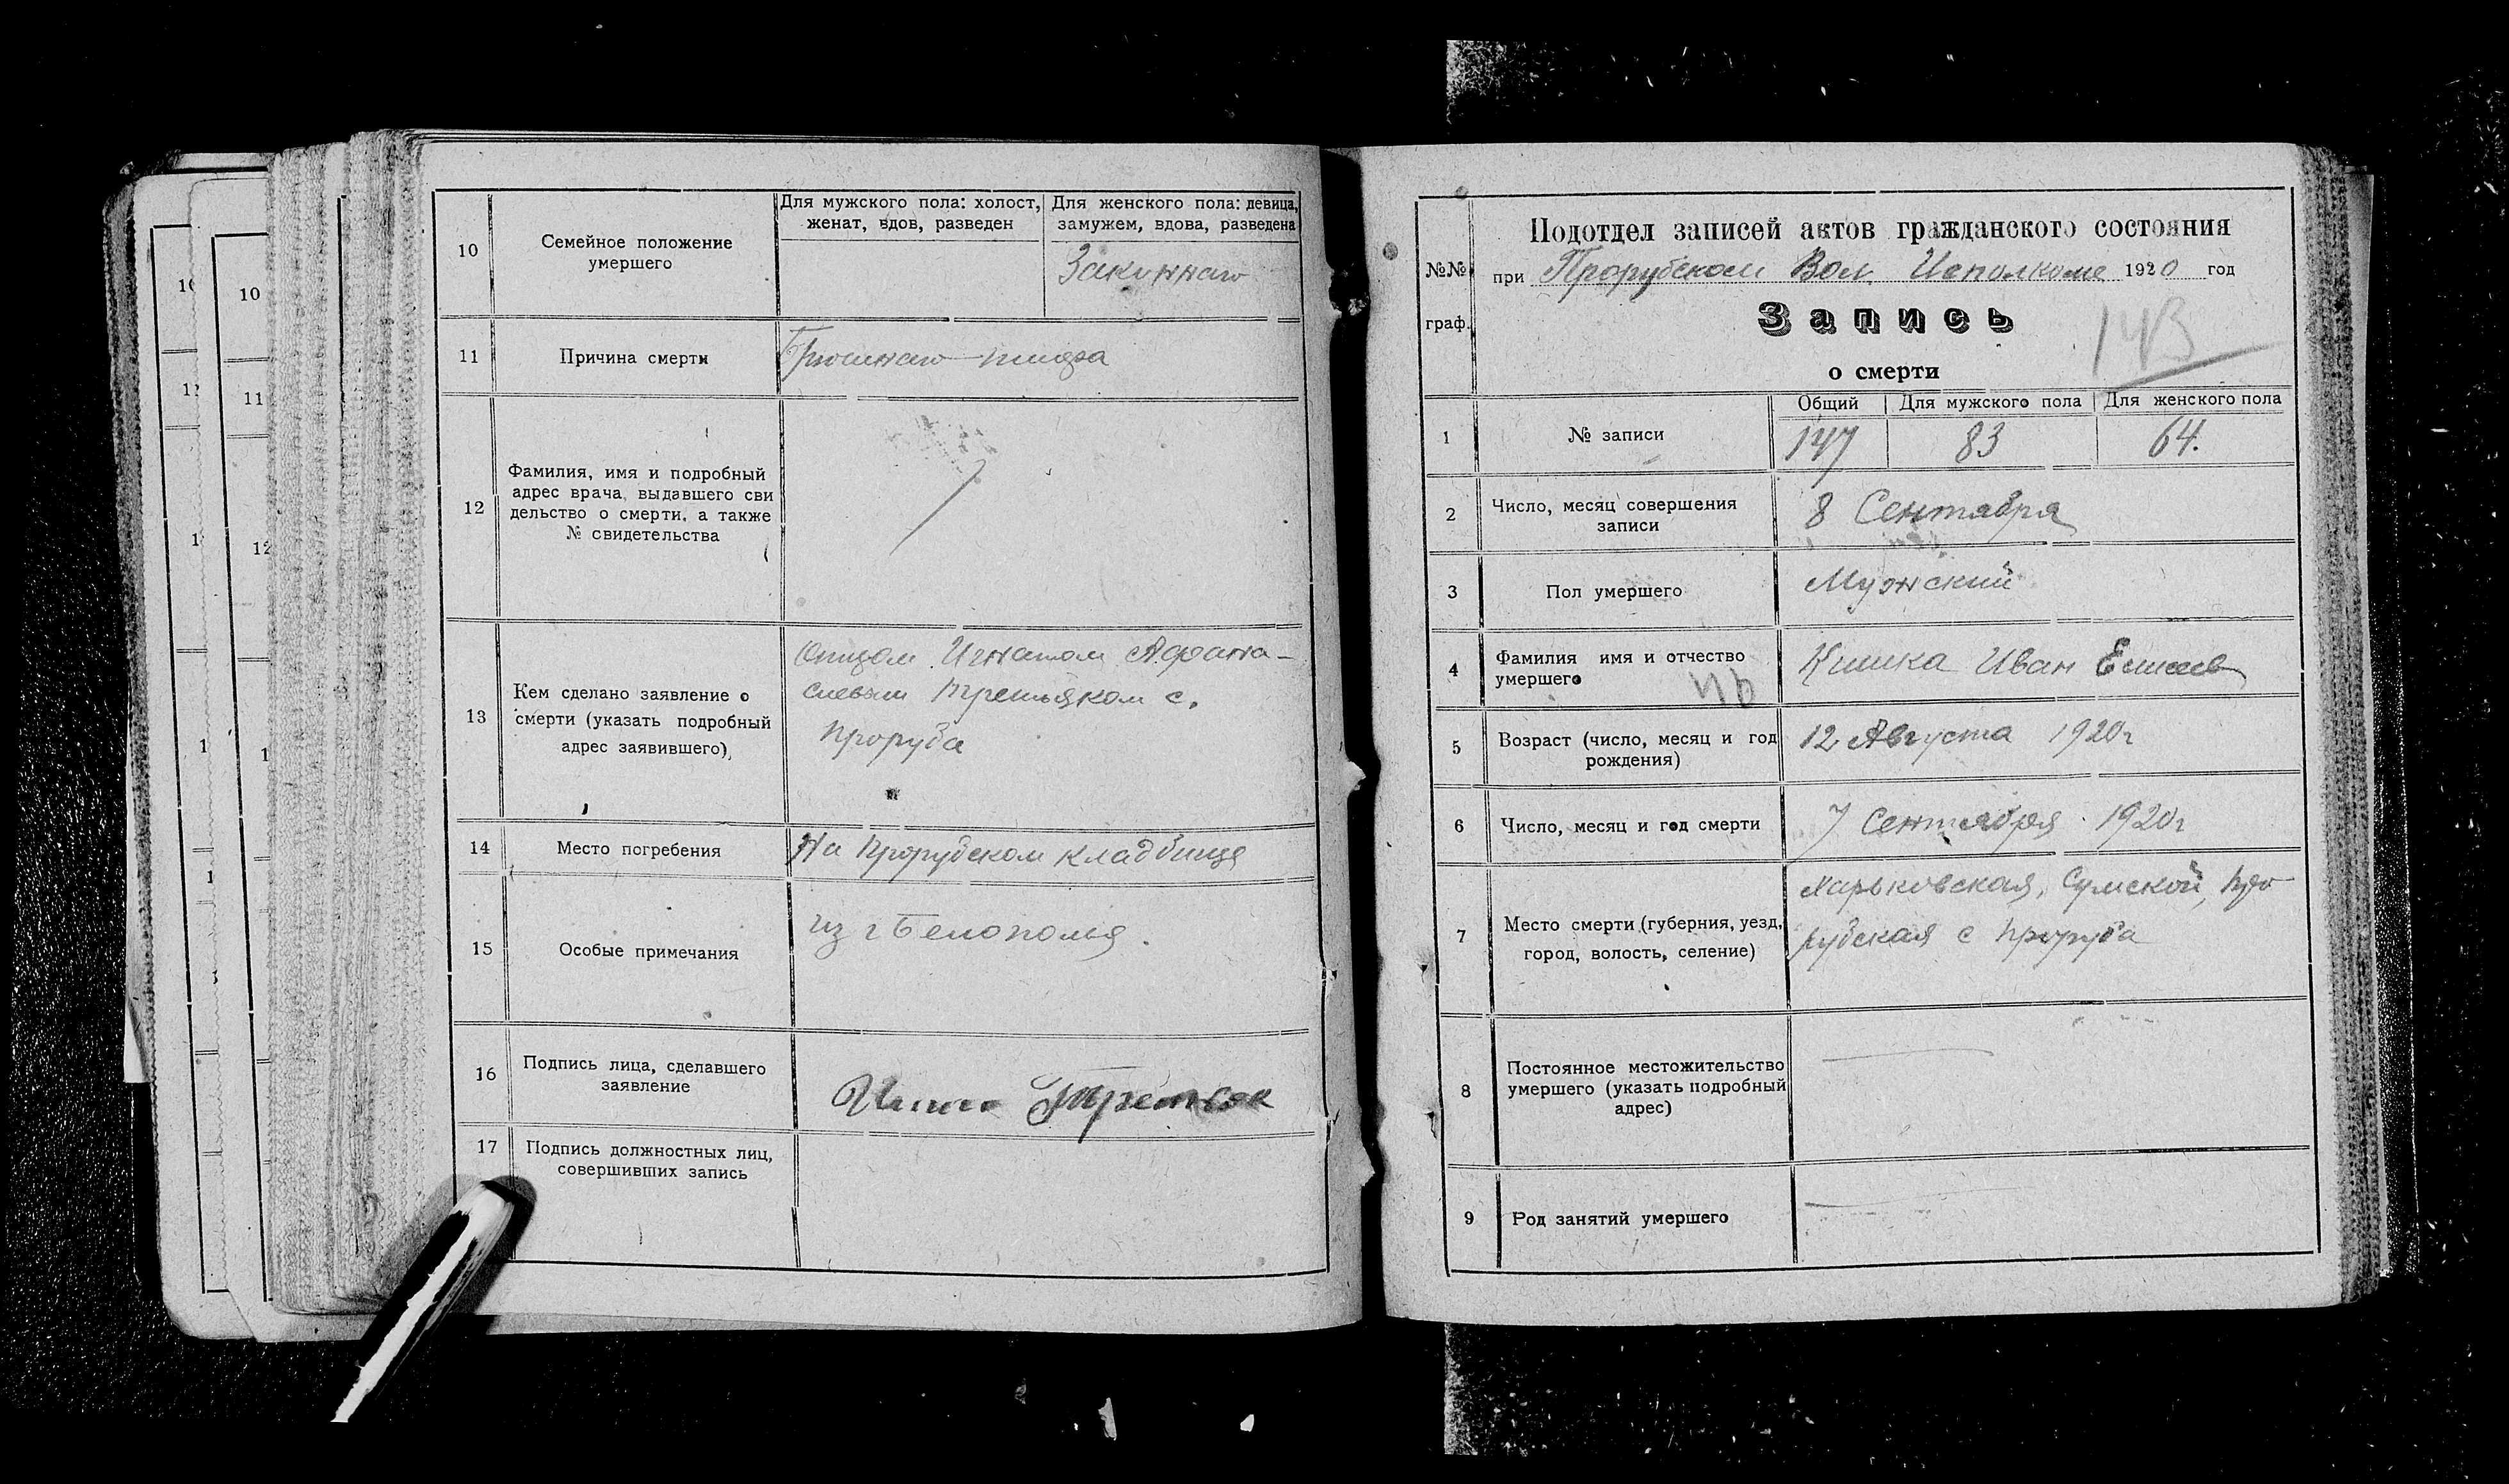 10
Семейное положение
умершего
Для мужского пола: холост,
женат, вдов, разведен
Для женского пола: девица,
замужем, вдова, разведена
Законнаго
11
Причина смерти
12
Фамилия, имя и подробный
адрес врача, выдавшего сви
дельство о смерти, а также
№ свидетельства
13
Кем сделано заявление о
смерти (указать подробный
адрес заявившего)
Отцом Игнатом Афана-
сиевым Третьяком с.
Проруба
14
Место погребения
На Прорубском кладбище
15
Особые примечания
из г Белополья.
16
Подпись лица, сделавшего
заявление
Третьяк
17
Подпись должностных лиц,
совершивших запись
№№
граф.
Подотдел записей актов гражданского состояния
при Прорубском Вол. Исполкоме 1920 год
Запись
143
о смерти
1
№ записи
Общий
Для мужского пола
Для женского пола
147
83
64.
2
Число, месяц совершения
записи
8 Сентября
3
Пол умершего
Мужский
4
Фамилия имя и отчество
умершего
Кишка Иван
5
Возраст (число, месяц и год
рождения)
12 Августа 1920 г
6
Число, месяц и год смерти
7 Сентября 1920 г
7
Место смерти (губерния, уезд,
город, волость, селение)
Харьковская, Сумской, Про
рубская с Проруба
8
Постоянное местожительство
умершего (указать подробный
адрес)
9
Род занятий умершего